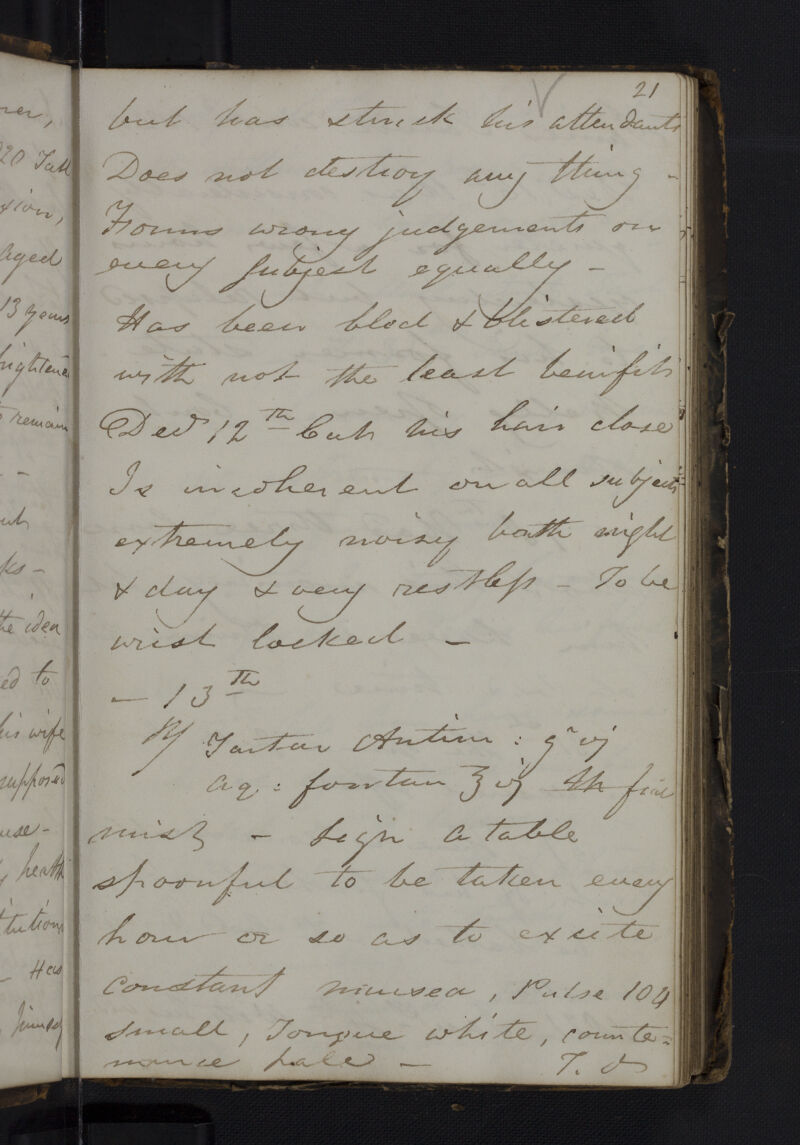 21
but has struck his attendants
Does not destroy any thing -
Forms wrong judgements on
every subject equally -
Has been bled & blistered
with not the least benifit
Decr 12th Cut his hair close
Is incoherent on all subjects
extremely noisy both night
& day & very restless - To be
wrist locked -
- 13th
Tartar Antim: gr vj
aq: fontan ℥ vj fiat
mist - Sign A table
spoonful to be taken every
hour or so as to excite
constant nausea, Pulse 104
small, Tongue white, counte=
nance pale -
ner,
20 Tall
xion,
Aged
13 years
frightened
to remain
-
ks -
the idea
ed to
his wife
supposed
use -
health
stitution
- Has
himself